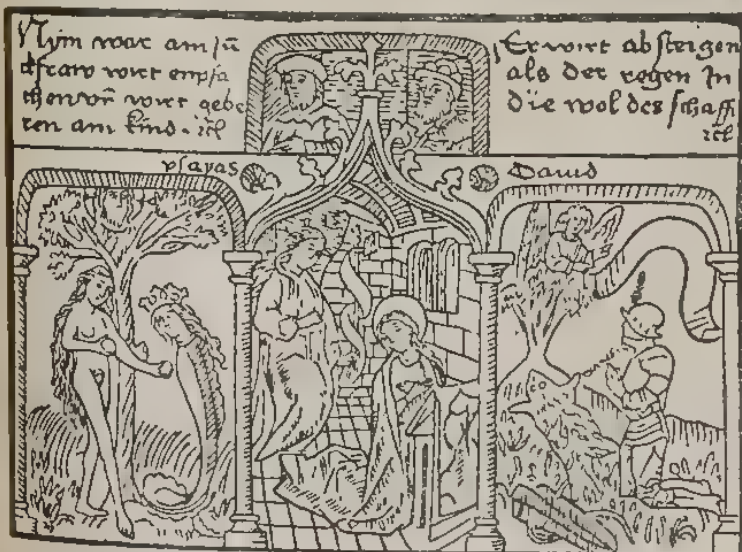 Nym war am Jū
dfraw wirt enpfa
chen vn̄ wirt gebe
ren am kind. ꝛc
Er wirt absteigen
als der regen In
die wol des schaff
ꝛc
ysayas
Dauid